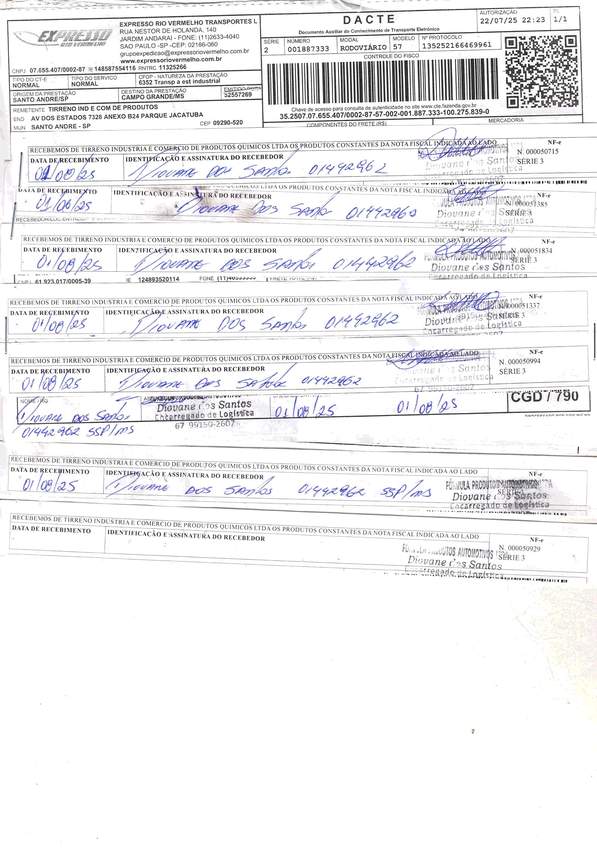 EXPRESSO
RIO VERMELHO
EXPRESSO RIO VERMELHO TRANSPORTES L
RUA NESTOR DE HOLANDA, 140
JARDIM ANDARAI - FONE: (11)2633-4040
SAO PAULO -SP -CEP: 02166-060
grupoexpedicao@expressoriovermelho.com
www.expressoriovermelho.com
CNPJ 07.655.407/0002-87 IE 148587554116 RNTRC 11325266
TIPO DO CT-E
NORMAL
TIPO DO SERVIÇO
NORMAL
CFOP - NATUREZA DA PRESTAÇÃO
6352 Transp a est industrial
ORIGEM DA PRESTAÇÃO
SANTO ANDRE/SP
DESTINO DA PRESTAÇÃO
CAMPO GRANDE/MS
32557269
REMETENTE TIRRENO IND E COM DE PRODUTOS
END AV DOS ESTADOS 7328 ANEXO B24 PARQUE JACATUBA
MUN SANTO ANDRE - SP CEP 09290-520
DACTE
Documento Auxiliar do Conhecimento de Transporte Eletrônico
SÉRIE
2
NÚMERO
001887333
MODAL
RODOVIÁRIO
MODELO
57
Nº PROTOCOLO
135252166469961
AUTORIZAÇÃO
22/07/25 22:23
FL
1/1
CONTROLE DO FISCO
Chave de acesso para consulta de autenticidade no site www.cte.fazenda.gov.br
35.2507.07.655.407/0002-87-57-002-001.887.333-100.275.839-0
COMPONENTES DO FRETE (R$)
MERCADORIA
RECEBEMOS DE TIRRENO INDUSTRIA E COMERCIO DE PRODUTOS QUIMICOS LTDA OS PRODUTOS CONSTANTES DA NOTA FISCAL INDICADA AO LADO
NF-e
DATA DE RECEBIMENTO
IDENTIFICAÇÃO E ASSINATURA DO RECEBEDOR
N. 000050715
SÉRIE 3
01/08/25
Diovane dos Santos 01442962
Diovane dos Santos
Encarregado de Logística
01/08/25
Diovane dos Santos 01442962
Diovane dos Santos
Encarregado de Logística
RECEBEMOS DE TIRRENO INDUSTRIA E COMERCIO DE PRODUTOS QUIMICOS LTDA OS PRODUTOS CONSTANTES DA NOTA FISCAL INDICADA AO LADO
NF-e
DATA DE RECEBIMENTO
IDENTIFICAÇÃO E ASSINATURA DO RECEBEDOR
N. 000051834
SÉRIE 3
01/08/25
Diovane dos Santos 01442962
Diovane dos Santos
Encarregado de Logística
61.923.017/0005-39 IE 124893520114
RECEBEMOS DE TIRRENO INDUSTRIA E COMERCIO DE PRODUTOS QUIMICOS LTDA OS PRODUTOS CONSTANTES DA NOTA FISCAL INDICADA AO LADO
NF-e
DATA DE RECEBIMENTO
IDENTIFICAÇÃO E ASSINATURA DO RECEBEDOR
01/08/25
Diovane dos Santos 01442962
Diovane dos Santos
Encarregado de Logística
RECEBEMOS DE TIRRENO INDUSTRIA E COMERCIO DE PRODUTOS QUIMICOS LTDA OS PRODUTOS CONSTANTES DA NOTA FISCAL INDICADA AO LADO
NF-e
DATA DE RECEBIMENTO
IDENTIFICAÇÃO E ASSINATURA DO RECEBEDOR
N. 000050994
SÉRIE 3
01/08/25
Diovane dos Santos 01442962
Diovane dos Santos
01442962 SSP/MS
Diovane dos Santos
Encarregado de Logística
67 99159-2607
01/08/25
01/08/25
CGD7790
RECEBEMOS DE TIRRENO INDUSTRIA E COMERCIO DE PRODUTOS QUIMICOS LTDA OS PRODUTOS CONSTANTES DA NOTA FISCAL INDICADA AO LADO
NF-e
DATA DE RECEBIMENTO
IDENTIFICAÇÃO E ASSINATURA DO RECEBEDOR
01/08/25
Diovane dos Santos 01442962 SSP/MS
Diovane dos Santos
Encarregado de Logística
RECEBEMOS DE TIRRENO INDUSTRIA E COMERCIO DE PRODUTOS QUIMICOS LTDA OS PRODUTOS CONSTANTES DA NOTA FISCAL INDICADA AO LADO
NF-e
DATA DE RECEBIMENTO
IDENTIFICAÇÃO E ASSINATURA DO RECEBEDOR
N. 000050929
SÉRIE 3
Diovane dos Santos
Encarregado de Logística